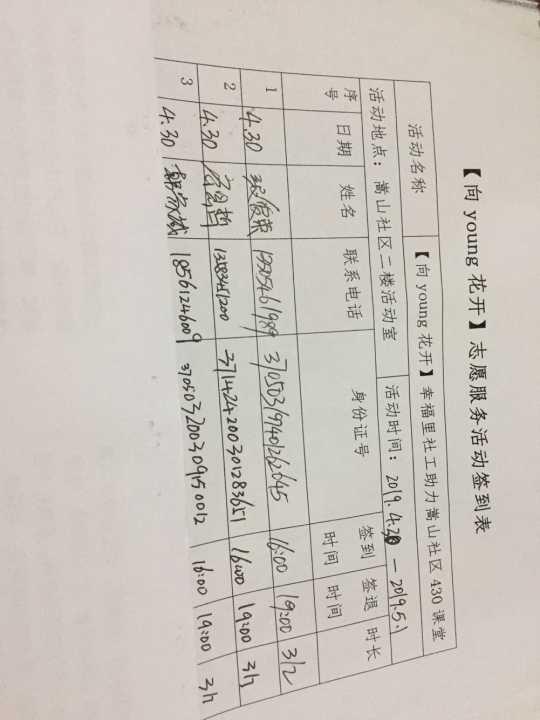 【向 young 花开】志愿服务活动签到表
活动名称 【向 young 花开】幸福里社工助力嵩山社区 430 课堂
活动地点：嵩山社区二楼活动室 活动时间：2019.4.30 — 2019.5.1
序号 日期 姓名 联系电话 身份证号 签到时间 签退时间 时长
1 4.30 370503197401262645 16:00 19:00 3h
2 4.30 371424200301283651 16:00 19:00 3h
3 4.30 18561246009 16:00 19:00 3h